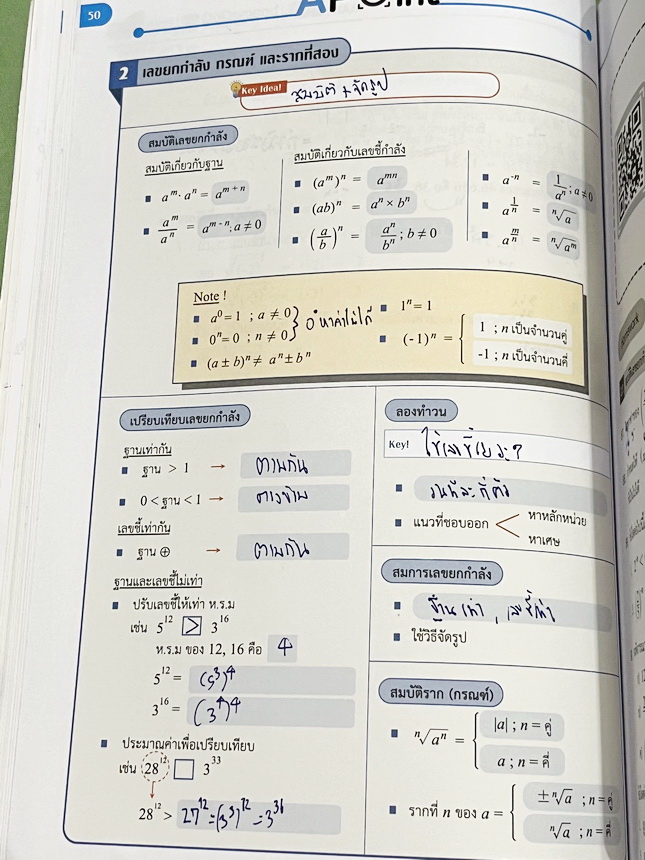 50
2 เลขยกกำลัง กรณฑ์ และรากที่สอง
Key Idea! สมบัติ + จัดรูป
สมบัติเลขยกกำลัง
สมบัติเกี่ยวกับฐาน
aᵐ · aⁿ = aᵐ⁺ⁿ
aᵐ/aⁿ = aᵐ⁻ⁿ ; a ≠ 0
สมบัติเกี่ยวกับเลขชี้กำลัง
(aᵐ)ⁿ = aᵐⁿ
(ab)ⁿ = aⁿ × bⁿ
(a/b)ⁿ = aⁿ/bⁿ ; b ≠ 0
a⁻ⁿ = 1/aⁿ ; a ≠ 0
a^(1/n) = ⁿ√a
a^(m/n) = ⁿ√aᵐ
Note !
a⁰ = 1 ; a ≠ 0
0ⁿ = 0 ; n ≠ 0 } 0⁰ หาค่าไม่ได้
(a ± b)ⁿ ≠ aⁿ ± bⁿ
1ⁿ = 1
(-1)ⁿ = { 1 ; n เป็นจำนวนคู่
-1 ; n เป็นจำนวนคี่
เปรียบเทียบเลขยกกำลัง
ฐานเท่ากัน
ฐาน > 1 → ตามกัน
0 < ฐาน < 1 → ตรงข้าม
เลขชี้เท่ากัน
ฐาน ⊕ → ตามกัน
ฐานและเลขชี้ไม่เท่า
ปรับเลขชี้ให้เท่า ห.ร.ม
เช่น 5¹² > 3¹⁶
ห.ร.ม ของ 12, 16 คือ 4
5¹² = (5³)⁴
3¹⁶ = (3⁴)⁴
ประมาณค่าเพื่อเปรียบเทียบ
เช่น 28¹² □ 3³³
28¹² > 27¹² = (3³)¹² = 3³⁶
ลองทำวน
Key!
แนวที่ชอบออก < หาหลักหน่วย
หาเศษ
สมการเลขยกกำลัง
ฐานเท่า , เลขชี้เท่า
ใช้วิธีจัดรูป
สมบัติราก (กรณฑ์)
ⁿ√aⁿ = { |a| ; n = คู่
a ; n = คี่
รากที่ n ของ a = { ±ⁿ√a ; n = คู่
ⁿ√a ; n = คี่